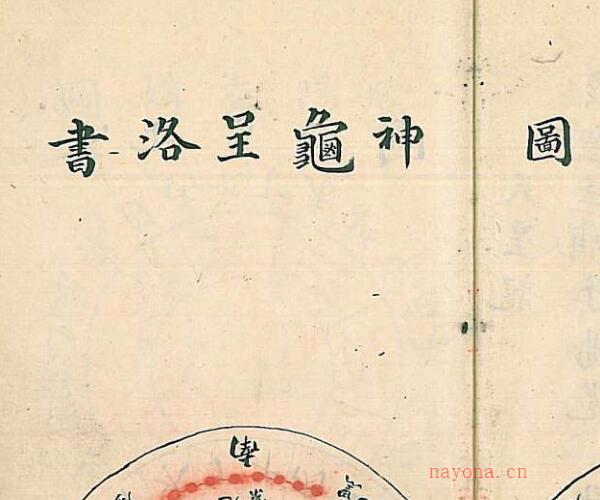 圖
神龜呈洛書
nayona.cn